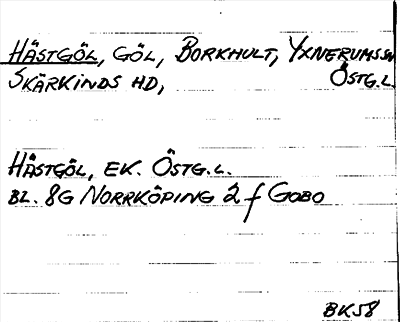 HÄSTGÖL, GÖL, BORKHULT, YXNERUMSSN
SKÄRKINDS HD, ÖSTG.L.
HÄSTGÖL, EK. ÖSTG.L.
BL. 8G NORRKÖPING 2 f GOBO
BK58